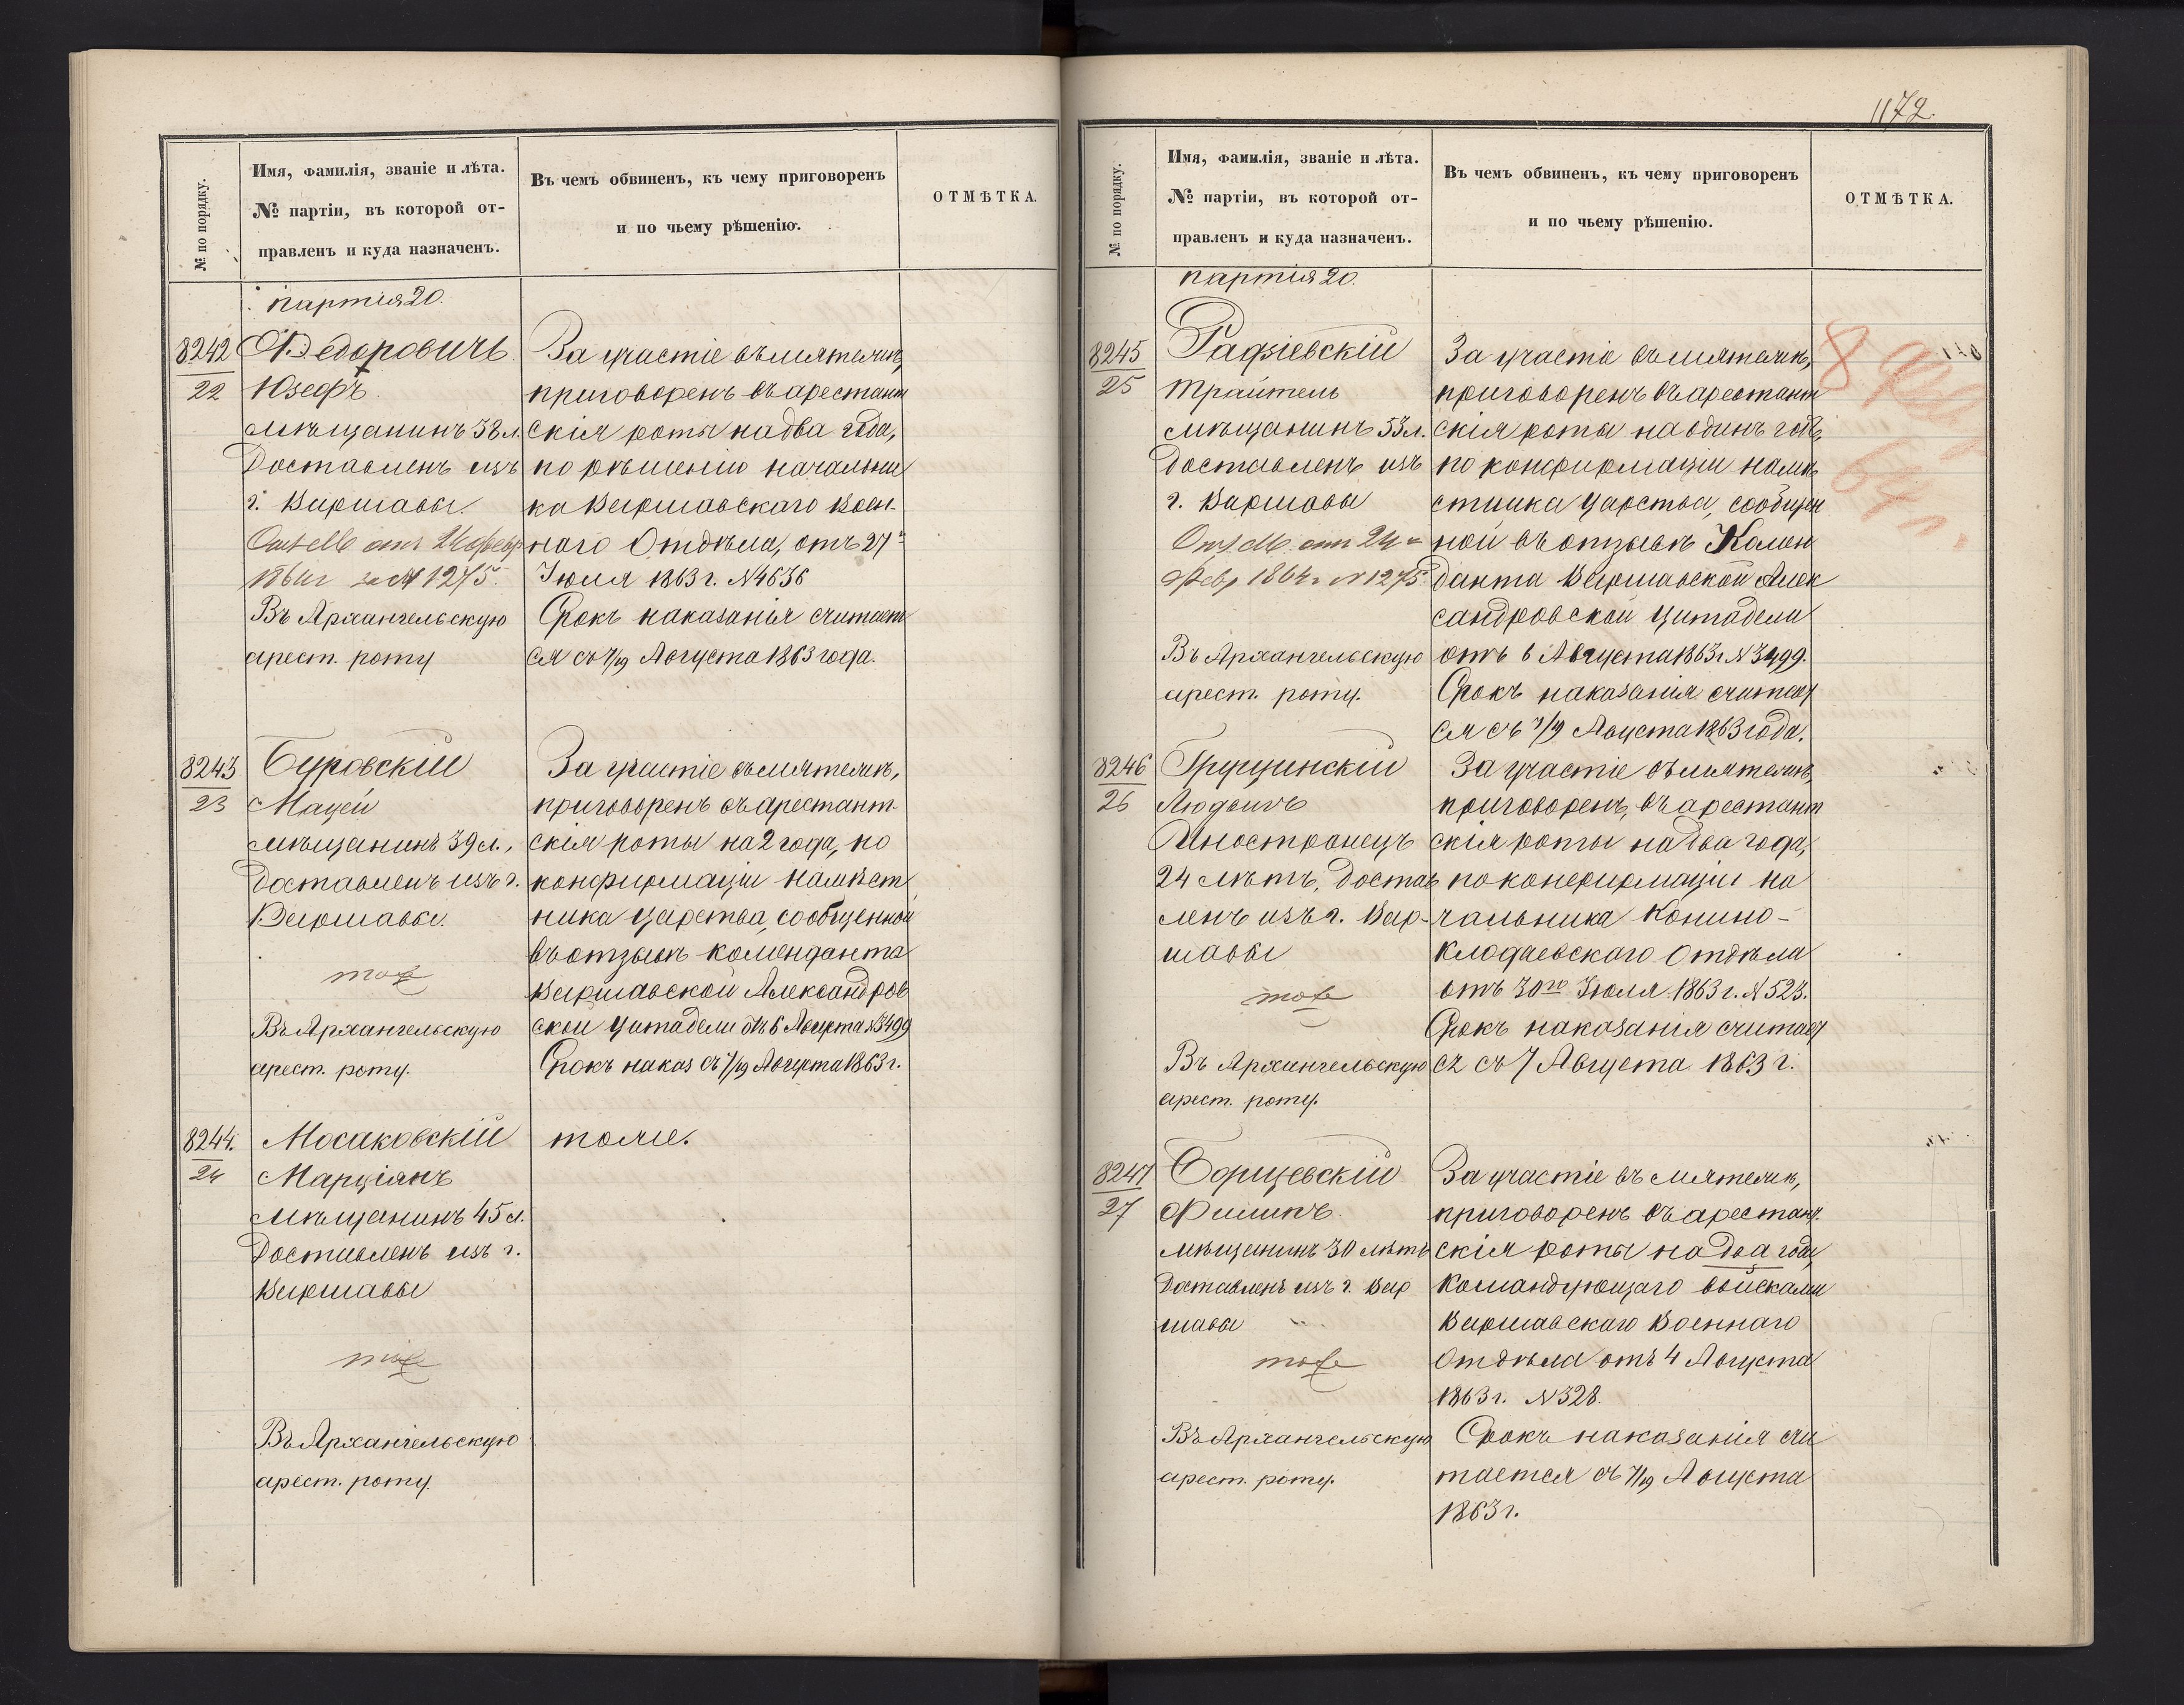 № по порядку.
Имя, фамилія, званіе и лѣта.
№ партіи, въ которой от-
правленъ и куда назначенъ.
Въ чемъ обвиненъ, къ чему приговоренъ
и по чьему рѣшенію.
ОТМѢТКА.
партія 20.
8242
22
Федоровичъ
Юзефъ
мѣщанинъ 38 л.
Доставленъ изъ
г. Варшавы.
1864 г за № 1275.
Въ Архангельскую
арест. роту
За участіе въ мятежѣ,
приговоренъ въ арестант
скія роты на два года,
по рѣшенію начальни
ка Варшавскаго Воен-
наго Отдѣла, отъ 27
Іюля 1863 г. № 4636
Срокъ наказанія считает
ся съ 7/19 Августа 1863 года.
8243
23
Буровскій
Мацей
мѣщанинъ 39 л.,
Доставленъ изъ г.
Варшавы.
тоже
Въ Архангельскую
арест. роту.
За участіе въ мятежѣ,
приговоренъ въ арестант
скія роты на 2 года, по
конфирмаціи намѣст
ника Царства, сообщенной
въ отзывѣ коменданта
Варшавской Александров
ской Цитадели отъ 6 Августа № 3499
Срокъ наказ съ 7/19 Августа 1863 г.
8244.
24
Мосаковскій
Марціянъ
мѣщанинъ 45 л.
Доставленъ изъ г.
Варшавы
тоже
Въ Архангельскую
арест. роту.
тоже.
1172.
№ по порядку.
Имя, фамилія, званіе и лѣта.
№ партіи, въ которой от-
правленъ и куда назначенъ.
Въ чемъ обвиненъ, къ чему приговоренъ
и по чьему рѣшенію.
ОТМѢТКА.
партія 20.
8245
25
Рафіевскій
Трайтель
мѣщанинъ 53 л.
Доставленъ изъ
г. Варшавы
Февр 1864 г № 1275
Въ Архангельскую
арест. роту.
За участіе въ мятежѣ,
приговоренъ въ арестант
скія роты на одинъ годъ,
по конфирмаціи намѣ
стника Царства, сообщен
ной въ отзывѣ Комен
данта Варшавской Алек
сандровской Цитадели
отъ 6 Августа 1863 г № 3499.
Срокъ наказанія считает
ся съ 7/19 Августа 1863 года.
8
64 г.
8246
26
Грущинскій
Людвигъ
Иностранецъ
24 лѣтъ, достав
ленъ изъ г. Вар-
шавы
тоже
Въ Архангельскую
арест. роту.
За участіе въ мятежѣ
приговоренъ, въ арестант
скія роты на два года,
по конфирмаціи на
чальника Конино-
Клодаевскаго Отдѣла
отъ 30го Іюля 1863 г. № 523.
Срокъ наказанія считает
ся съ 7 Августа 1863 г.
8247
27
Борщевскій
Филипъ
мѣщанинъ 30 лѣтъ
Доставленъ изъ г. Вар
шавы
тоже
Въ Архангельскую
арест. роту.
За участіе въ мятежѣ,
приговоренъ въ арестант.
скія роты на два года
Командующаго войсками
Варшавскаго Военнаго
Отдѣла отъ 4 Августа
1863 г. № 328.
Срокъ наказанія счи
тается съ 7/19 Августа
1863 г.